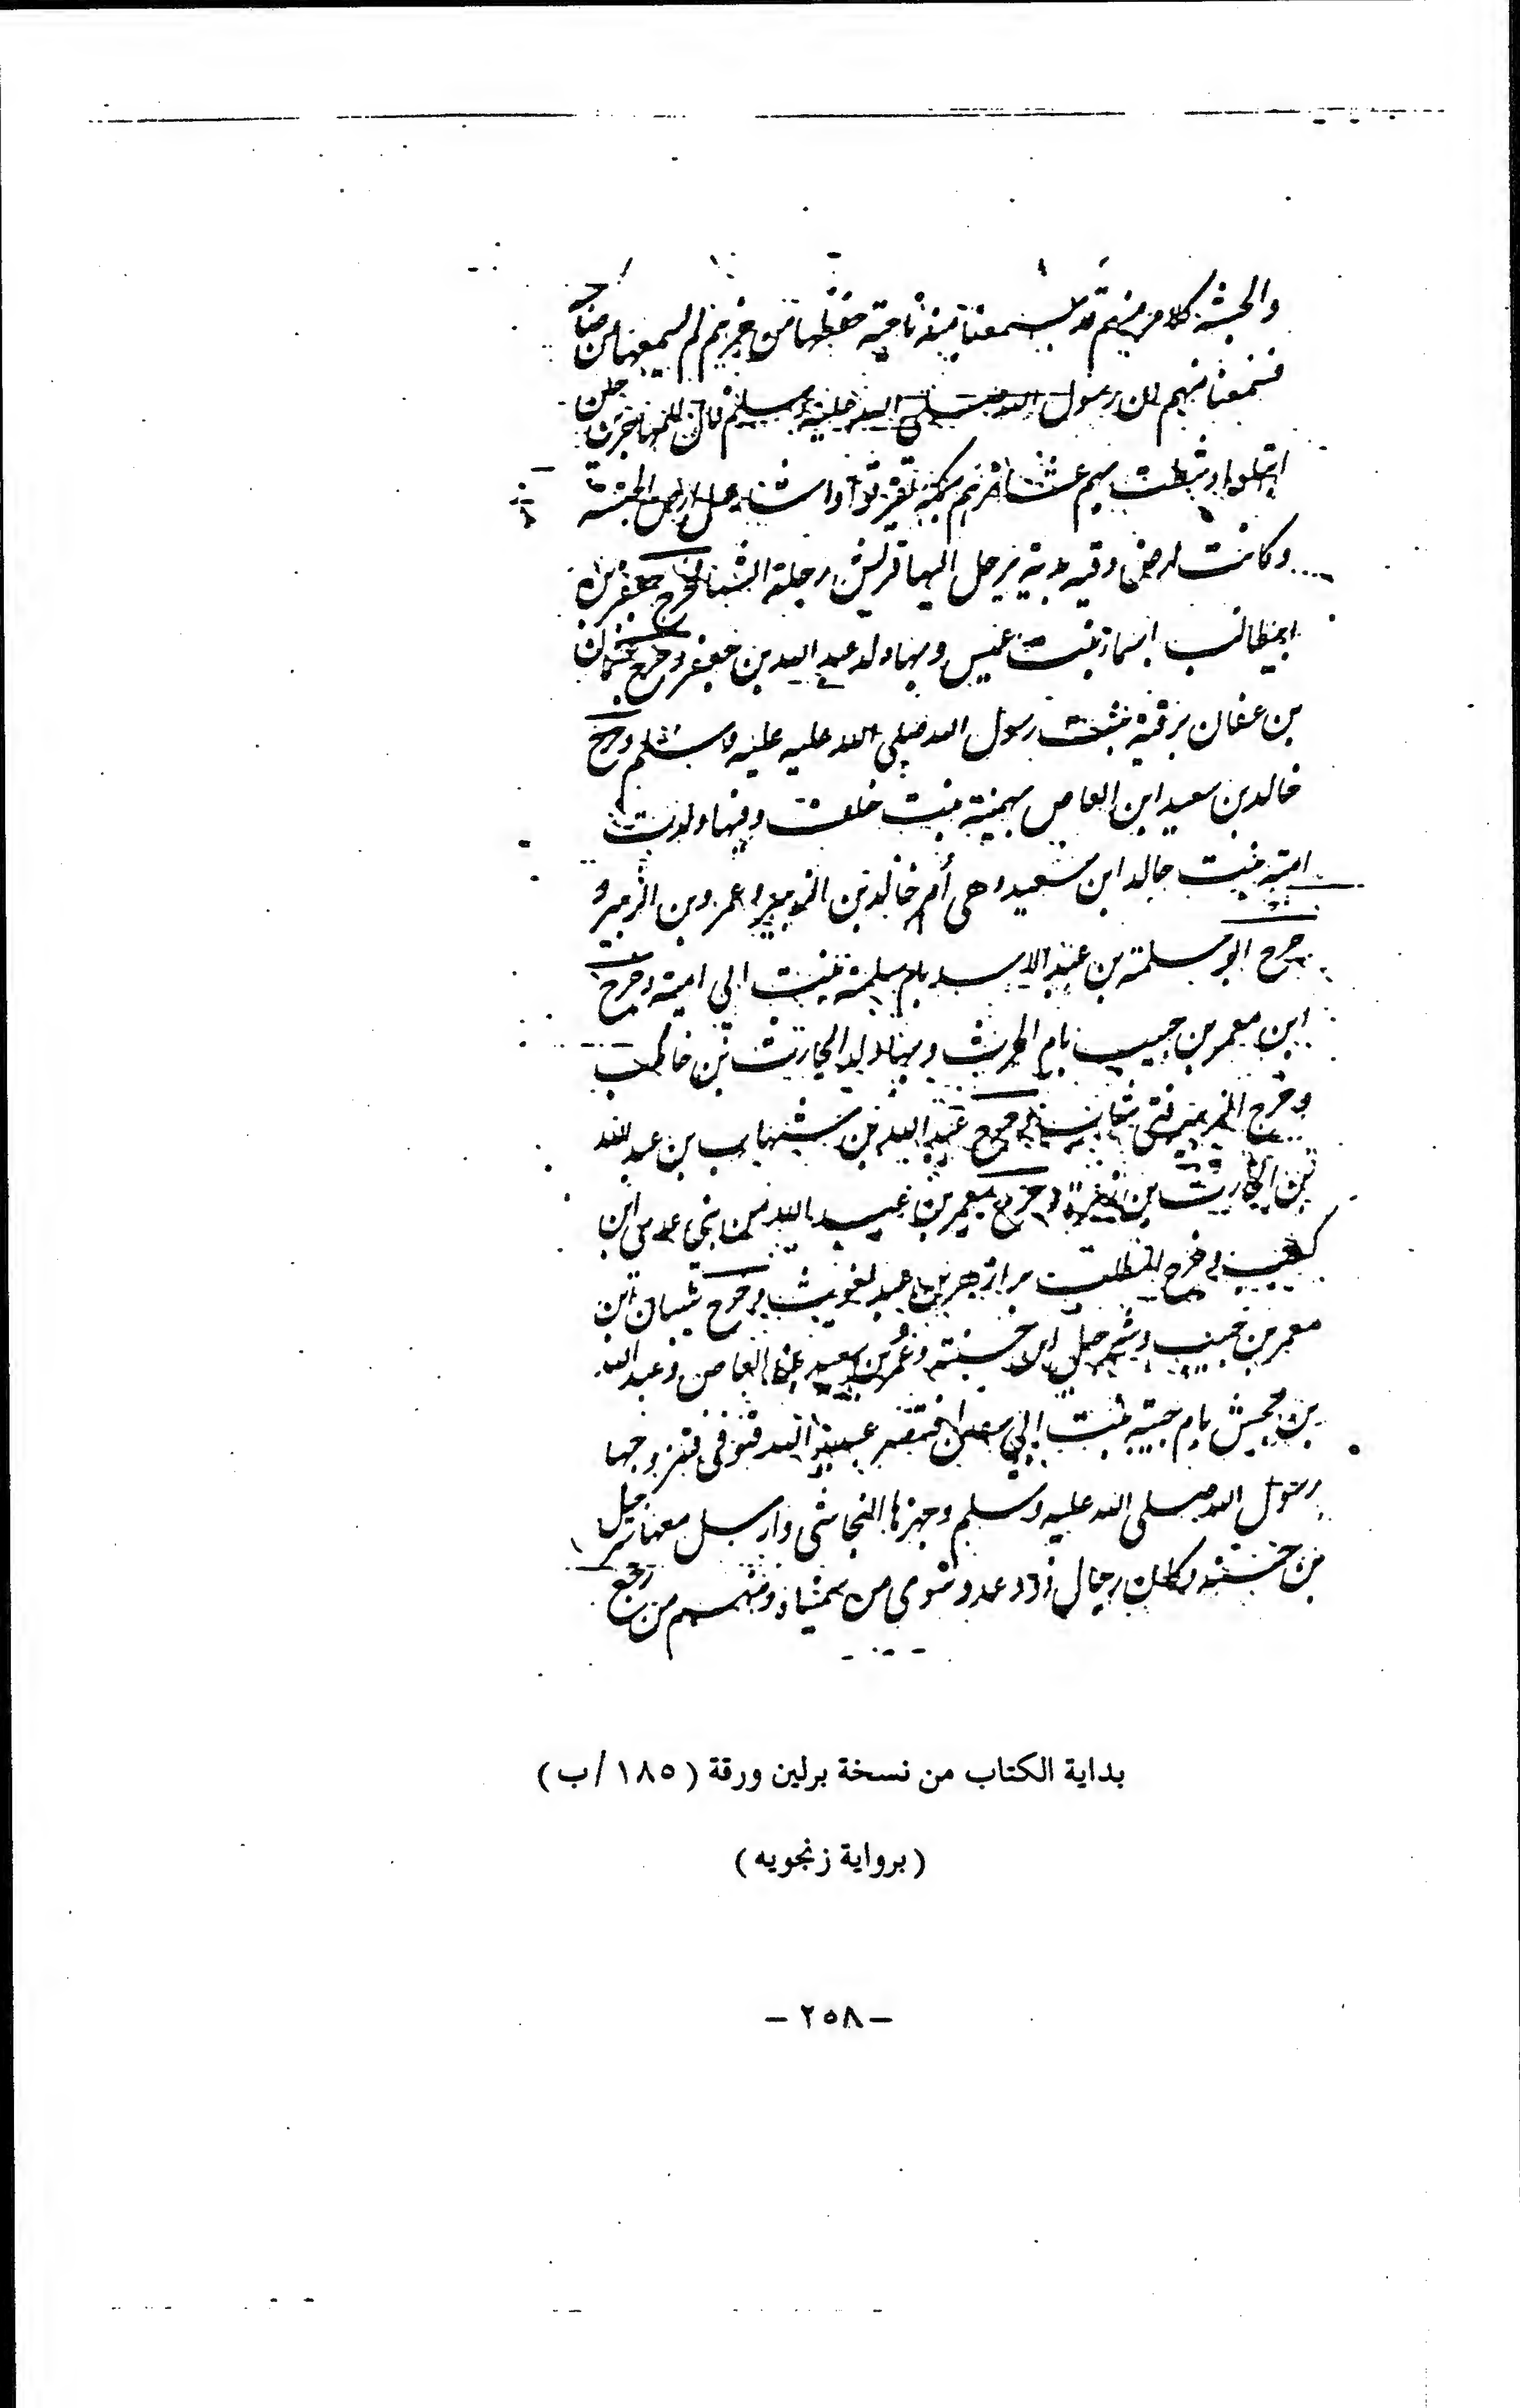 والحبشة كلا من خبرهم قد سمعنا منه ناحية حفظها من خبرهم لم يسمعها من صاحبه
فسمعنا منهم ان رسول الله صلى الله عليه وسلم قال للمهاجرين حين
ابتلوا وشطت بهم عشائرهم بمكة تفرقوا واشار قبل ارض الحبشة
وكانت ارض دفيه يرحل اليها قريش رحلة الشتا فخرج جعفر بن
ابيطالب باسماء بنت عميس وبها ولد عبد الله بن جعفر وخرج عثمان
بن عفان برقية بنت رسول الله صلى الله عليه عليه وسلم وخرج
خالد بن سعيد ابن العاص بهمينة بنت خلف وفيها ولدت
امة بنت خالد ابن سعيد وهي أم خالد بن الزبير وعمرو بن الزبير و
خرج ابو سلمة بن عبد الاسد بام سلمة بنت ابي امية وخرج
ابن معمر بن حبيب بام الحرث وبها ولد الحارث بن حاطب
وخرج الزبير فتى شاب وخرج عبد الله بن شهاب بن عبد الله
بن الحارث بن زهرة وخرج معمر بن عبد الله من بني عدي ابن
كعب وخرج المطلب بن ازهر بن عبد يغوث وخرج سفيان ابن
معمر بن حبيب وشرحبيل ابن حسنة وعمرو بن سعيد بن العاص وعبد الله
بن جحش بام حبيبة بنت ابي سفين فتنصر عبيد الله فتوفى فتزوجها
رسول الله صلى الله عليه وسلم وجهزها النجاشى وارسل معها شرحبيل
بن حسنه وكان رجال ذوو عدد سوى من سمينا ومنهم من رجع
بداية الكتاب من نسخة برلين ورقة (١٨٥/ب)
(برواية زنجويه)
- ٢٥٨ -